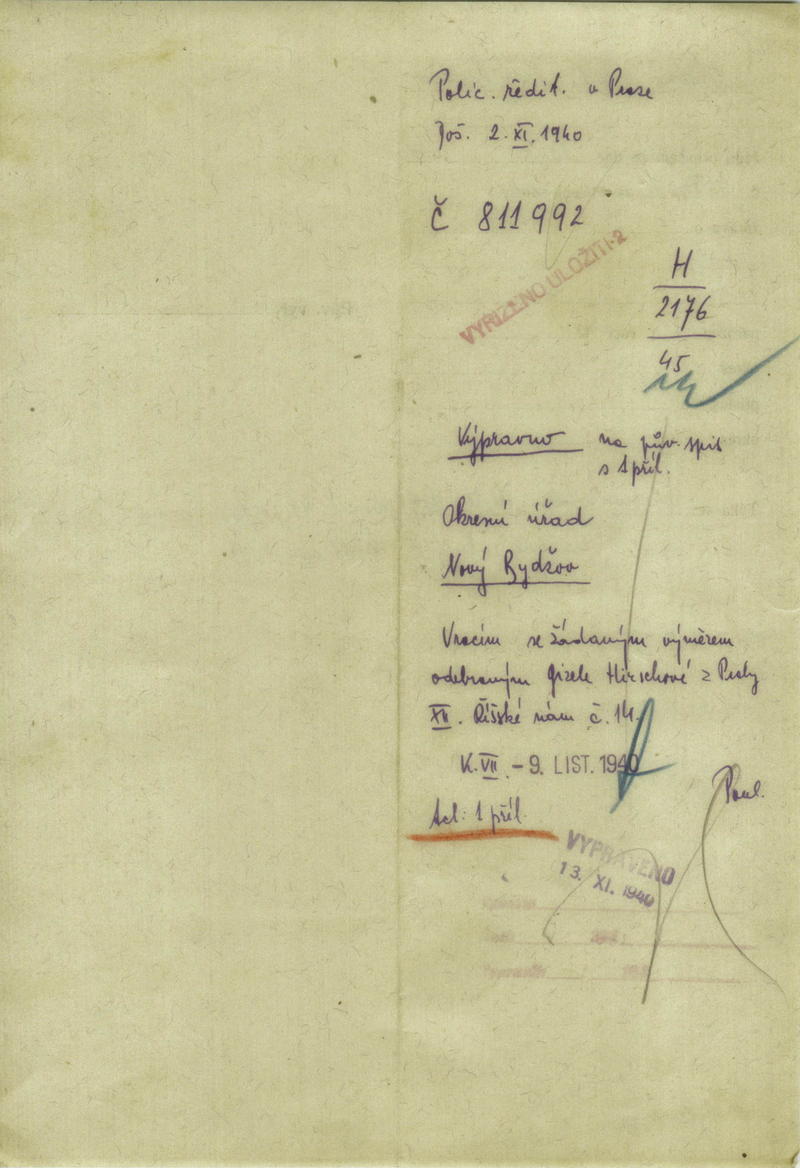 Polic. ředit. v Praze
Doš. 2. XI. 1940
Č 811992
VYŘÍZENO ULOŽITI-2
H
2176
45
Výpravno na pův. spis
s 1 příl.
Okresní úřad
Nový Bydžov
Vracím se žádaným výměrem
odebraným Gizele Hirschové z Prahy
XII. Říšské nám č. 14.
K. VII. - 9. LIST. 1940
Ad: 1 příl.
VYPRAVENO
13. XI. 1940